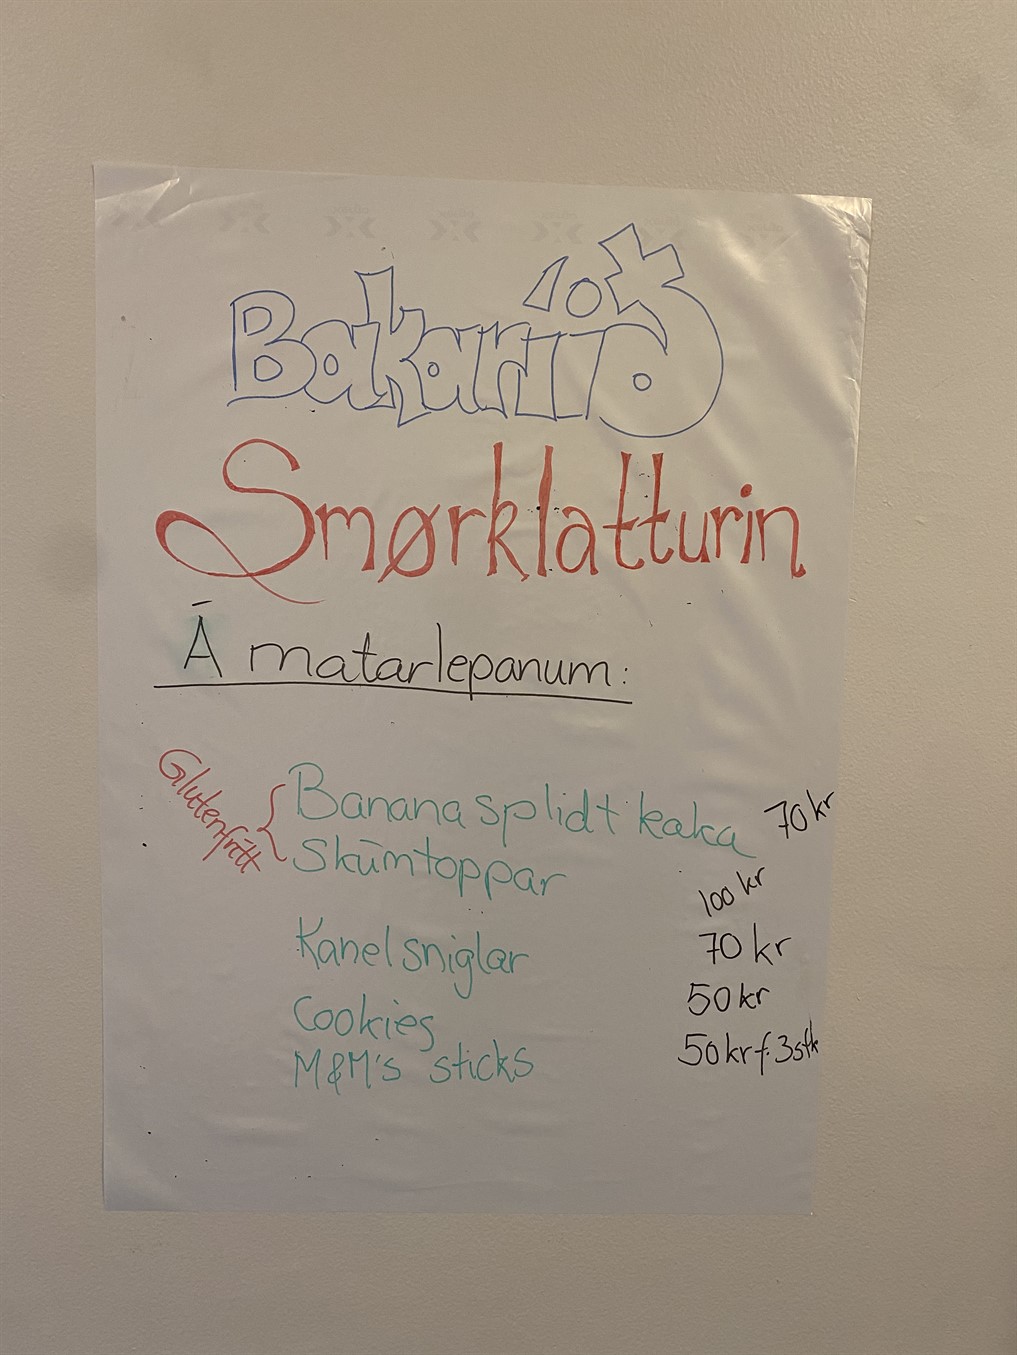 Bakaríið
Smørklatturin
Á matarlepanum:
Glutenfrítt
Banana splidt kaka 70 kr
Skúmtoppar 100 kr
Kanelsniglar 70 kr
Cookies 50 kr
M&M's sticks 50 kr f. 3 stk